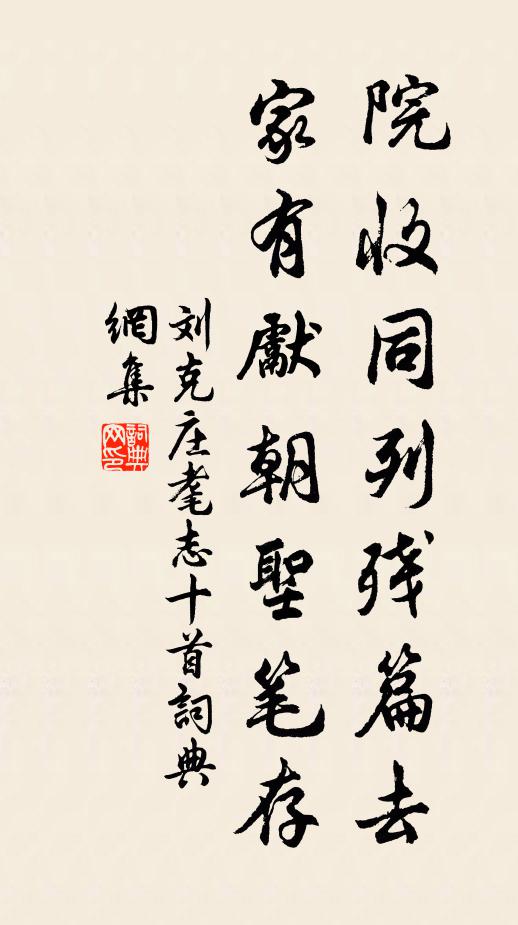 院收同列残篇去
家有獻朝聖笔存
刘克庄耄志十首詞典
網集
詞典
网印